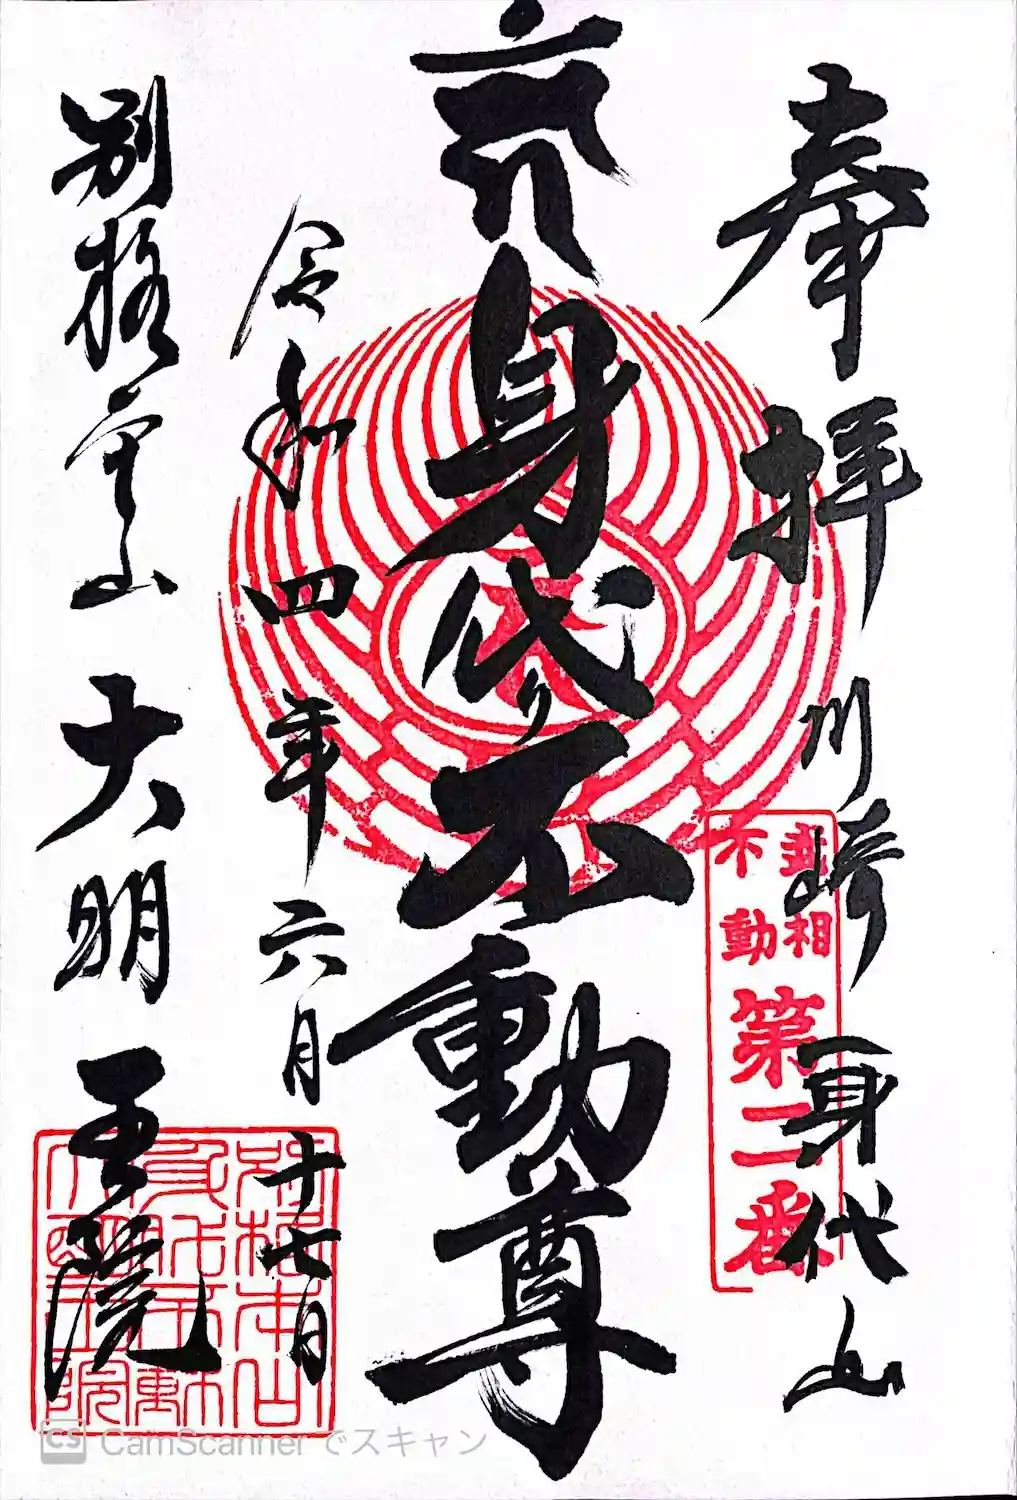 奉拝 川崎 身代山
武相
不動
第二番
身代り不動尊
令和四年六月十七日
別格本山 大明王院
CamScanner でスキャン